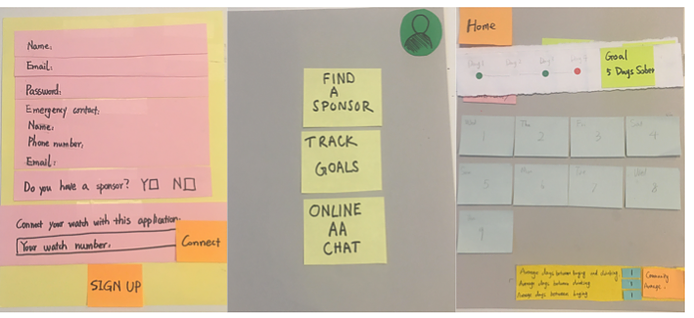 Name:
Email:
Password:
Emergency contact:
Name:
Phone number:
Email:
Do you have a sponsor? Y N
Connect your watch with this application:
Your watch number:
Connect
SIGN UP
FIND
A
SPONSOR
TRACK
GOALS
ONLINE
AA
CHAT
Home
Goal
5 Days Sober
1 2 3 4
5 6 7 8
9
Average days between buying and drinking 1
Average days between drinking 1
Average days between buying 1
Community
Average